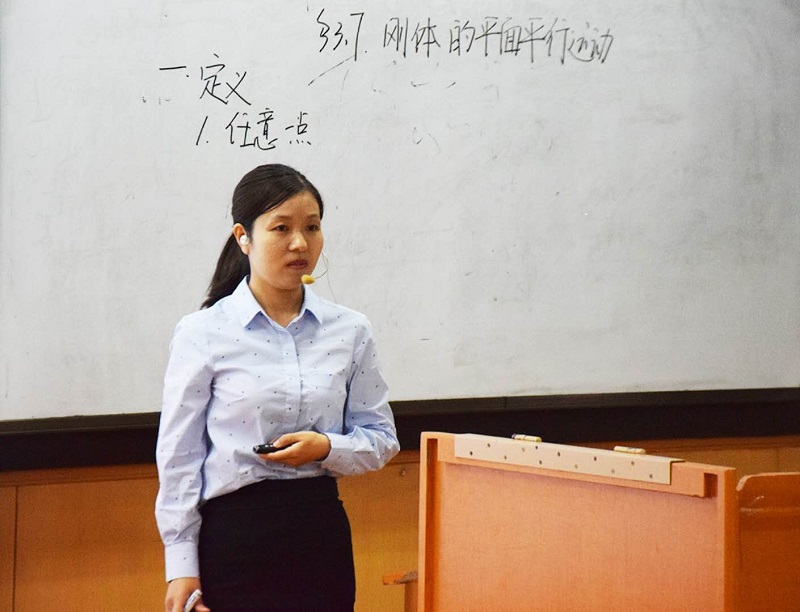 §3.7. 刚体的平面平行运动
一. 定义
1. 任意一点